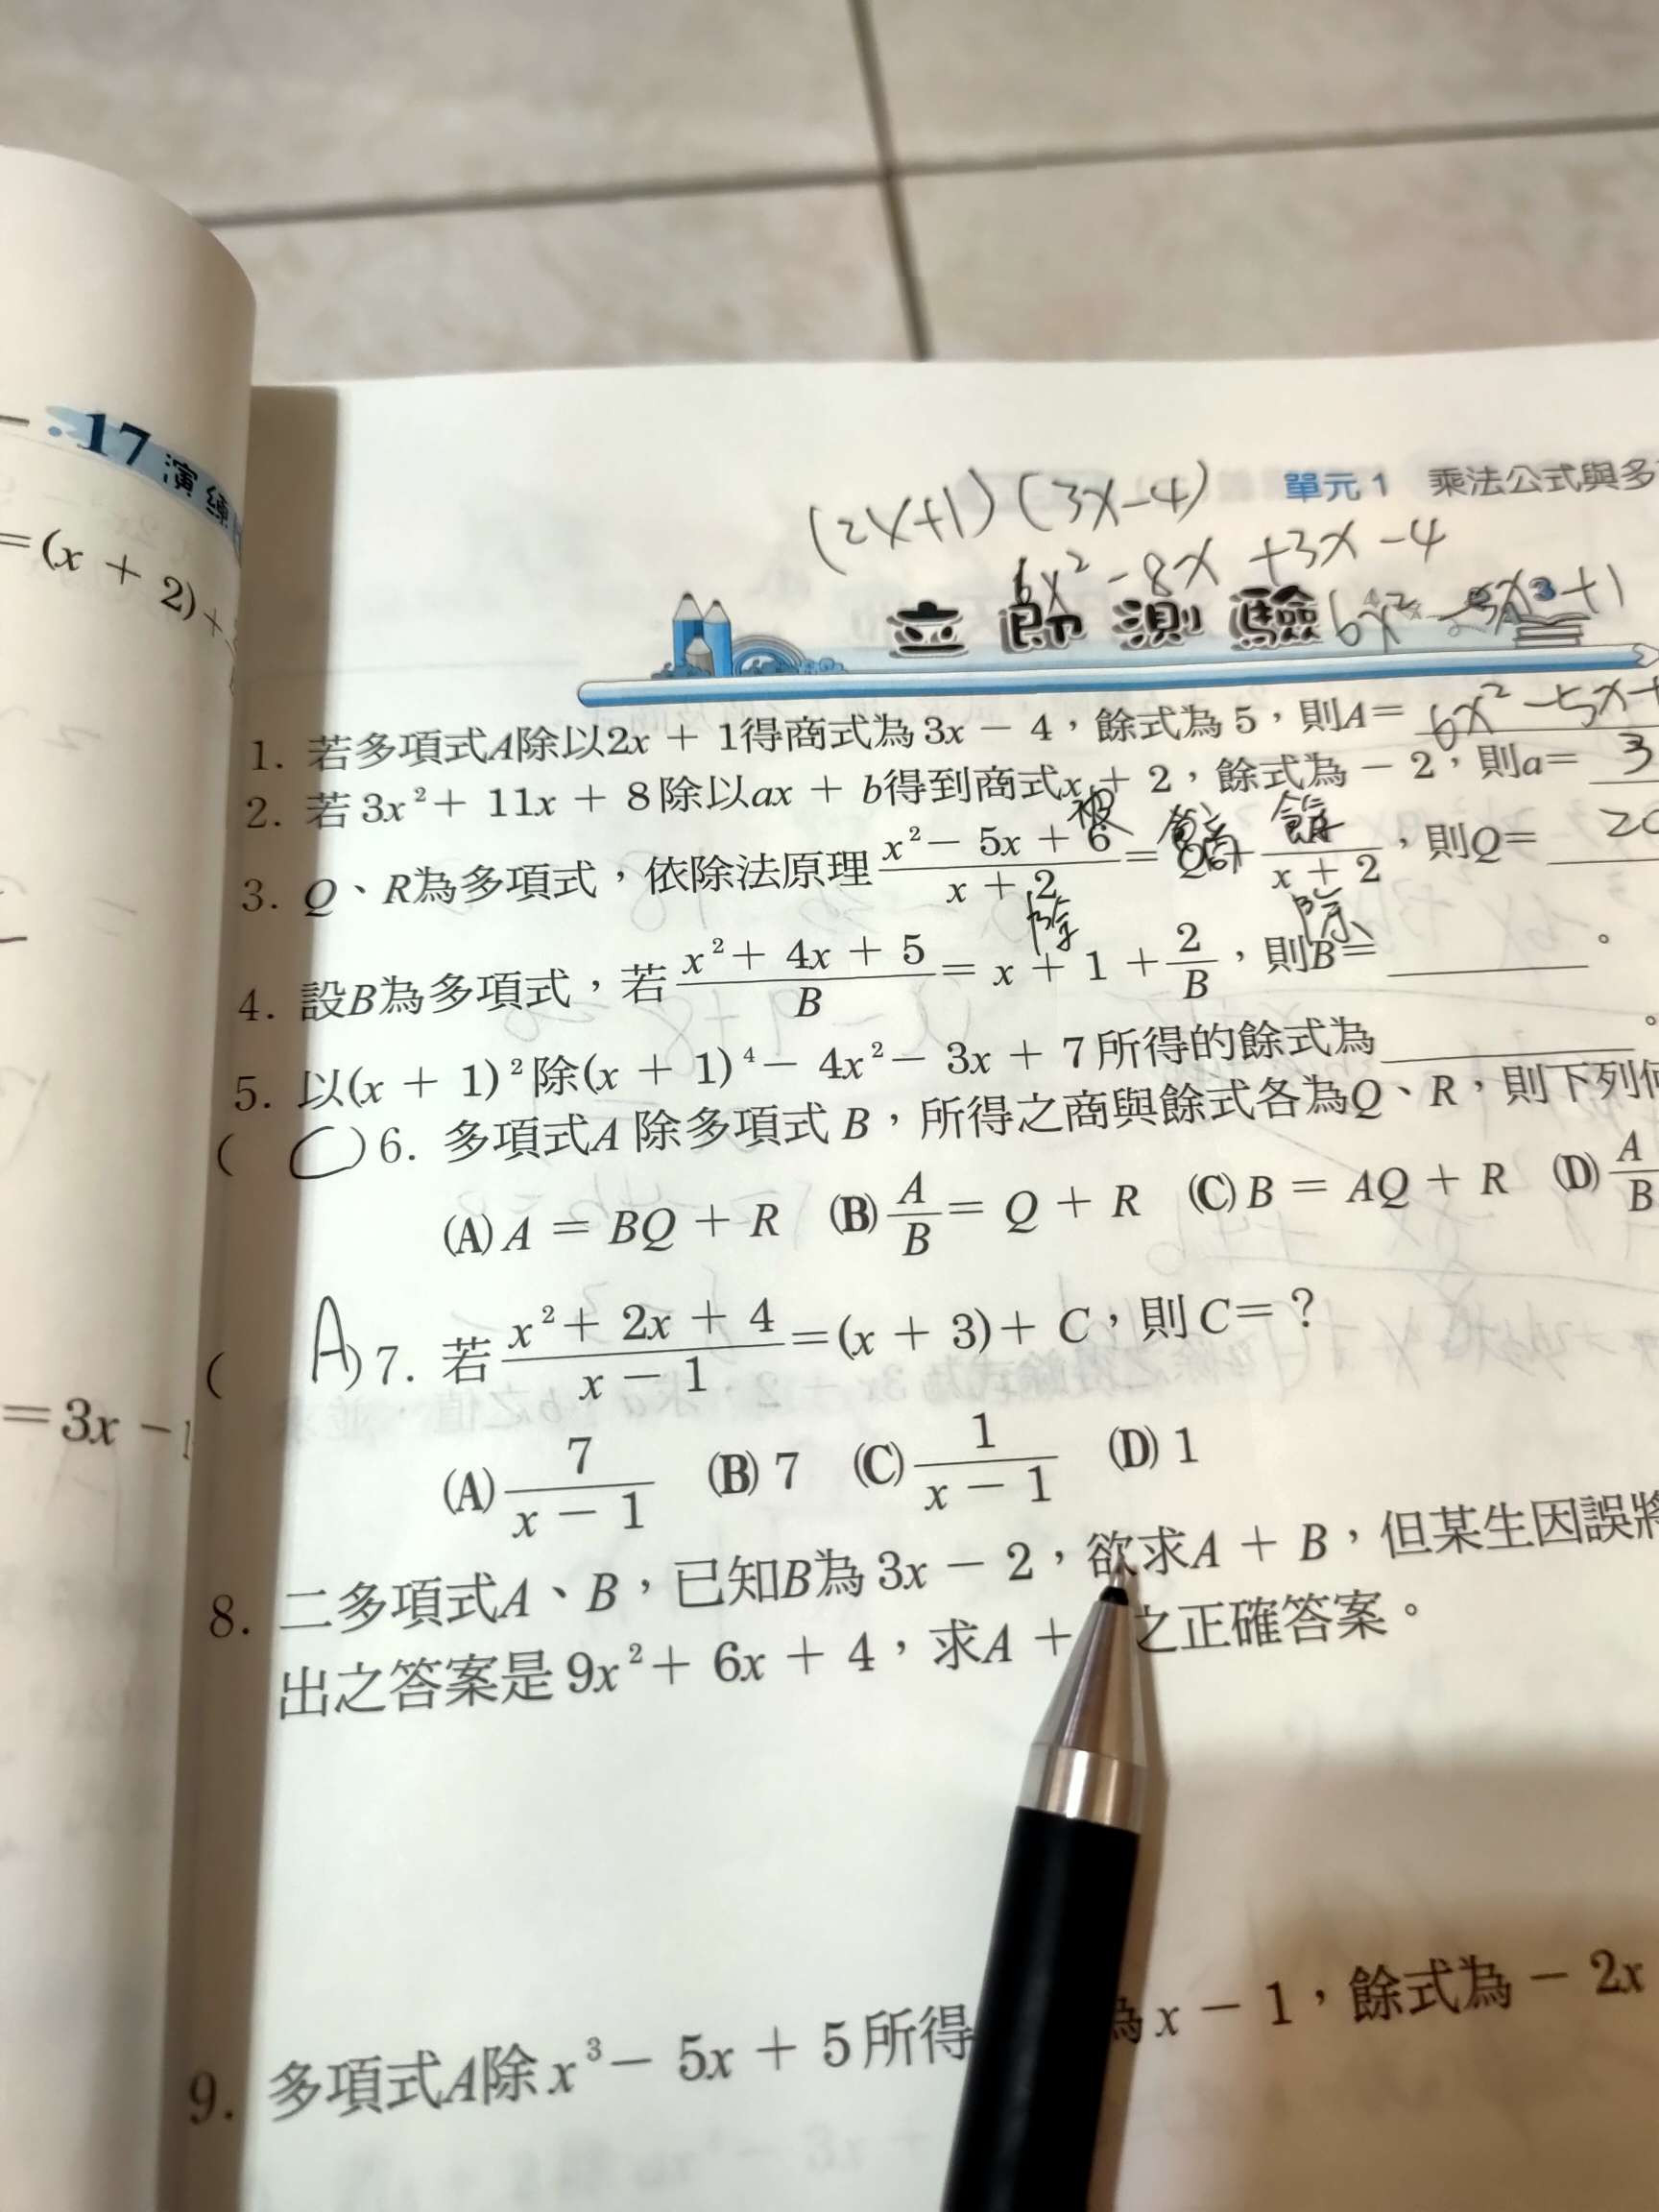 17 演練
= (x + 2) +
= 3x - 1
單元 1 乘法公式與多
(2x+1)(3x-4)
6x² - 8x + 3x - 4
立即測驗
1. 若多項式A除以2x + 1得商式為 3x - 4，餘式為 5，則A= 6x² - 5x +
2. 若 3x² + 11x + 8 除以ax + b得到商式x + 2，餘式為 - 2，則a= 3
被 商 餘
3. Q、R為多項式，依除法原理 (x² - 5x + 6)/(x + 2) = Q + /(x + 2)，則Q=
除 除
4. 設B為多項式，若 (x² + 4x + 5)/B = x + 1 + 2/B，則B= ______。
5. 以(x + 1)²除(x + 1)⁴ - 4x² - 3x + 7所得的餘式為______。
( C ) 6. 多項式A 除多項式 B，所得之商與餘式各為Q、R，則下列何
(A) A = BQ + R (B) A/B = Q + R (C) B = AQ + R (D) A/B
( A ) 7. 若 (x² + 2x + 4)/(x - 1) = (x + 3) + C，則 C = ?
(A) 7/(x - 1) (B) 7 (C) 1/(x - 1) (D) 1
8. 二多項式A、B，已知B為 3x - 2，欲求A + B，但某生因誤將
出之答案是 9x² + 6x + 4，求A + 之正確答案。
9. 多項式A除 x³ - 5x + 5 所得 為 x - 1，餘式為 - 2x